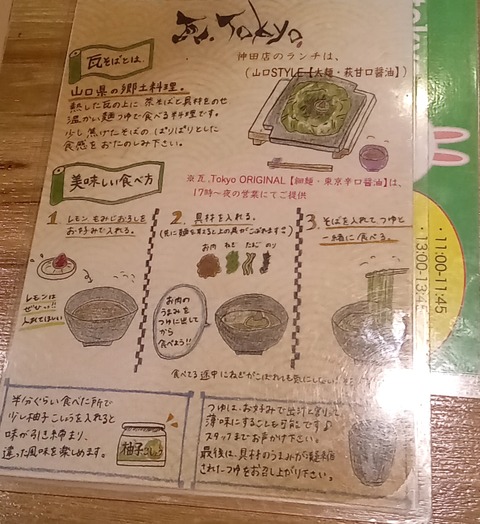 瓦.Tokyo.
仲田店のランチは、
(山口STYLE【太麺・萩甘口醤油】)
瓦そばとは、
山口県の郷土料理。
熱した瓦の上に茶そばと具材をのせ
温かい麺つゆで食べる料理です。
少し焦げたそばの、ぱりぱりとした
食感をおたのしみ下さい。
美味しい食べ方
※瓦.Tokyo ORIGINAL【細麺・東京辛口醤油】は、
17時〜夜の営業にてご提供
1. レモン、もみじおろしを
お好みで入れる。
レモンは
ぜひっ!!
入れてほしい
2. 具材を入れる。
お肉 ねぎ たまご のり
お肉の
うまみを
つゆに出して
から
食べよう!!
3. そばを入れてつゆと
一緒に食べる。
食べてる途中にねぎがこぼれても気にしない!
半分ぐらい食べた所で
少し柚子こしょうを入れると
味が引き締まり、
違った風味を楽しめます。
柚子こしょう
つゆは、お好みで出汁と割って
薄味にすることも可能です♪
スタッフまでお声かけ下さい。
最後は、具材のうまみが凝縮
されたつゆをお召し上がり下さい。
・11:00-11:45
・13:00-13:45